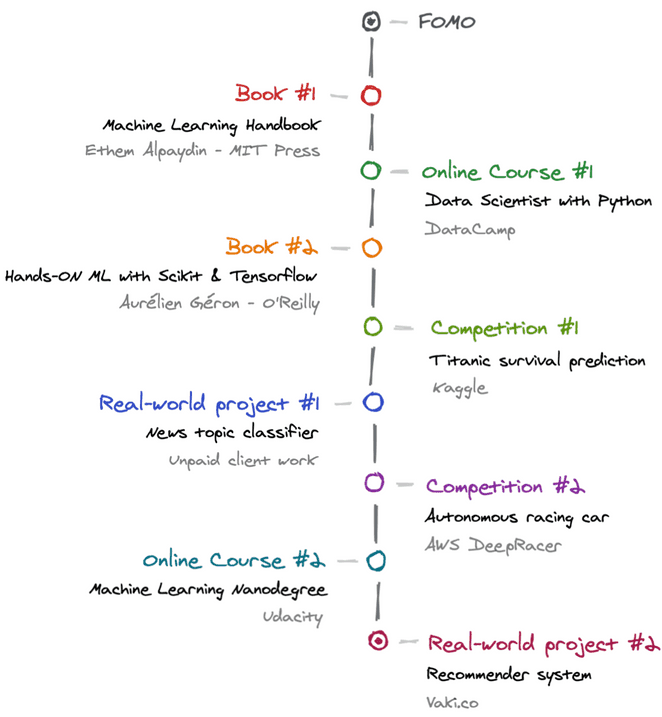 FOMO
Book #1
Machine Learning Handbook
Ethem Alpaydin - MIT Press
Online Course #1
Data Scientist with Python
DataCamp
Book #2
Hands-ON ML with Scikit & Tensorflow
Aurélien Géron - O'Reilly
Competition #1
Titanic survival prediction
Kaggle
Real-world project #1
News topic classifier
Unpaid client work
Competition #2
Autonomous racing car
AWS DeepRacer
Online Course #2
Machine Learning Nanodegree
Udacity
Real-world project #2
Recommender system
Vaki.co